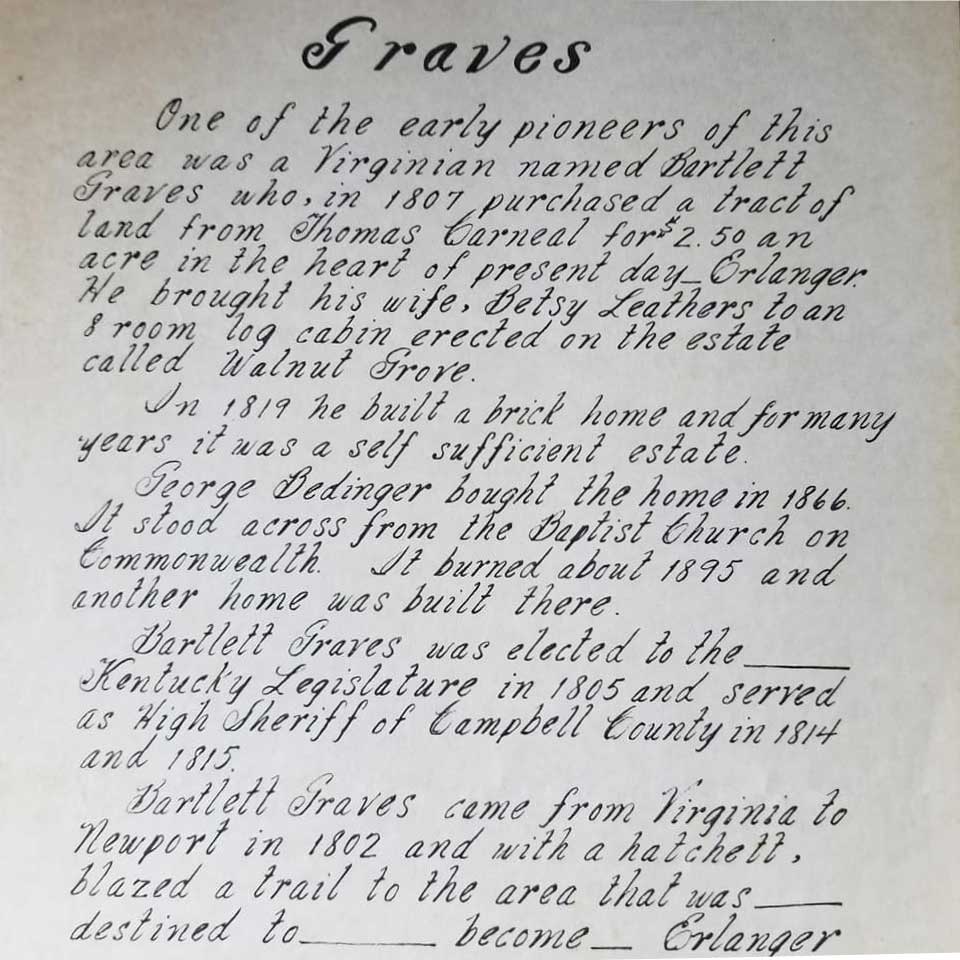 Graves
One of the early pioneers of this
area was a Virginian named Bartlett
Graves who, in 1807 purchased a tract of
land from Thomas Carneal for $2.50 an
acre in the heart of present day_Erlanger.
He brought his wife, Betsy Leathers to an
8 room log cabin erected on the estate
called Walnut Grove.
In 1819 he built a brick home and for many
years it was a self sufficient estate.
George Bedinger bought the home in 1866.
It stood across from the Baptist Church on
Commonwealth. It burned about 1895 and
another home was built there.
Bartlett Graves was elected to the______
Kentucky Legislature in 1805 and served
as High Sheriff of Campbell County in 1814
and 1815.
Bartlett Graves came from Virginia to
Newport in 1802 and with a hatchett,
blazed a trail to the area that was_____
destined to________ become__ Erlanger